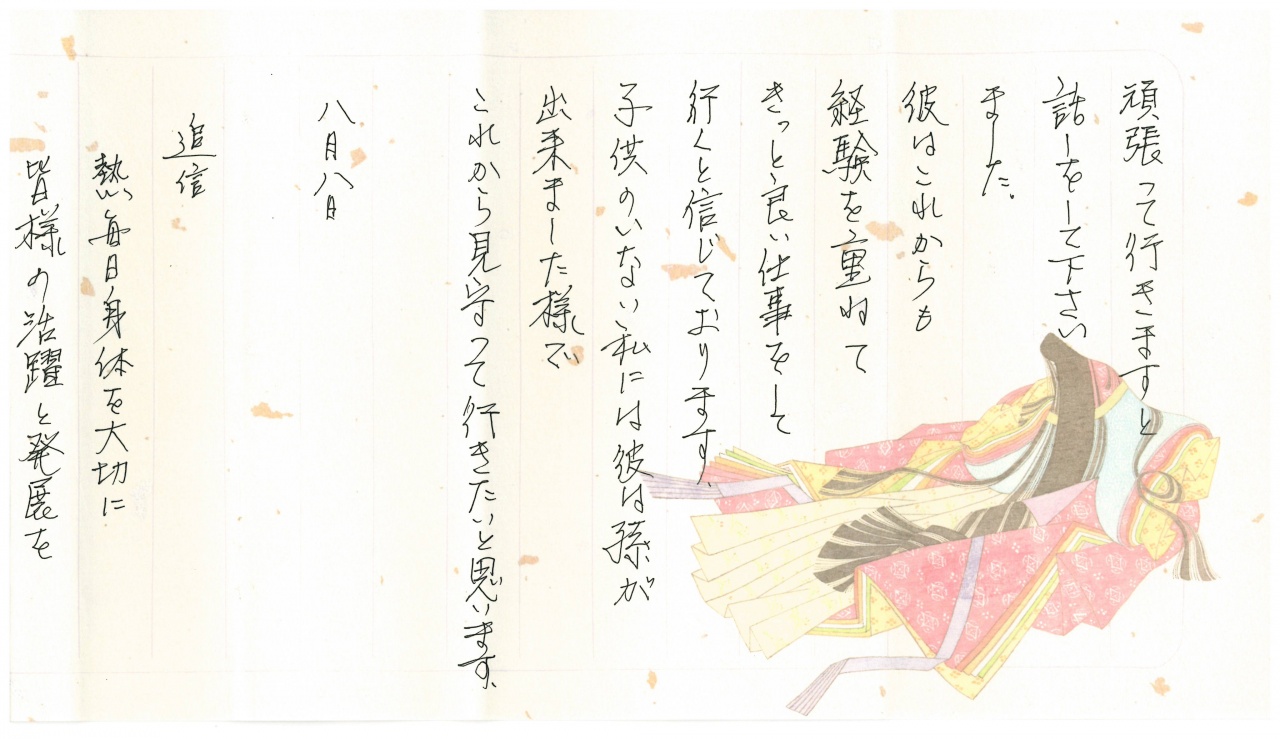 頑張って行きますと
話しをして下さい
ました。
彼はこれからも
経験を重ねて
きっと良い仕事をして
行くと信じております。
子供のいない私には彼は孫が
出来ました様で
これから見守って行きたいと思います。
八月八日
追信
熱い毎日身体を大切に
皆様の活躍と発展を